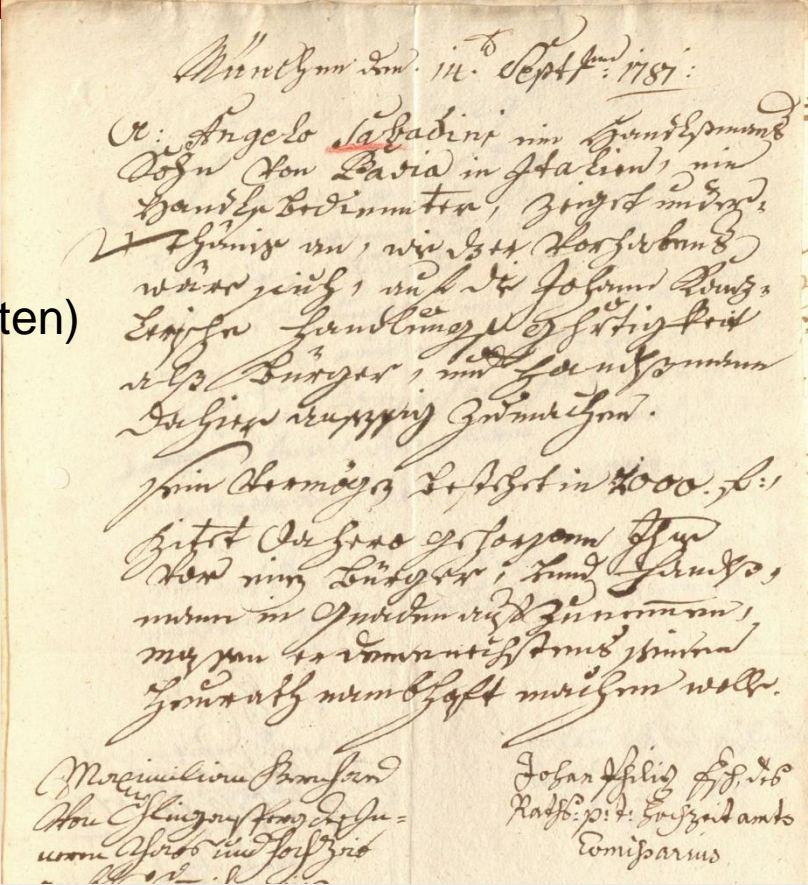 München den 14.t Sept: 1781:
A: Angelo Sabadini ein Handlsmans
Sohn von Pavia in Italien, ein
Handlsbedienter, zeiget under-
thänig an, wie dz er Vorhabens
wäre sich, auf die Johann
Handlungs Ghrtigkeit
als Bürger, und Handlsmann
dahier ansessig zumachen.
ten)
sein Vermögen bestehet in 2000. f:,
Bitet dahero gehorsamm Ihne
vor einen Bürger, und Handls,
mann in Gnaden auf Zunemmen,
massen er demenechstens seinen
Heurath nambhaft machen wolle.
Maximilian Bernhard
von In-
nern Raths und Hochzeit
Johan Philip des
Raths. p: t: Hochzeit amts
Comihsarius